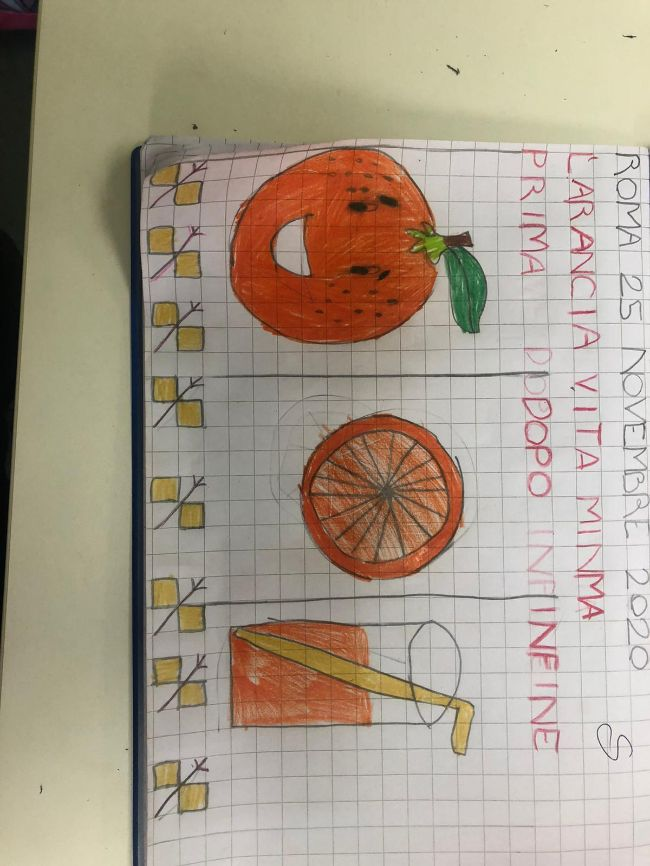 ROMA 25 NOVEMBRE 2020 S
L'ARANCIA VITA MINMA
PRIMA DODOPO INFINFINE